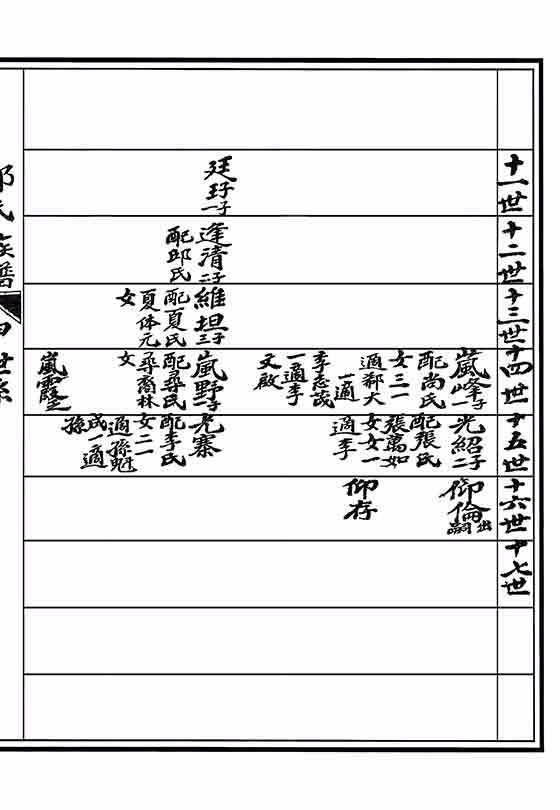 十一世
廷玗 一子
十二世
逢清 二子
配邱氏
十三世
維坦 三子
配夏氏
夏体元
女
十四世
嵐峰 一子
配尚氏
女三一
適郗大
一適
李志茂
一適李
文啟
嵐野 一子
配尋氏
尋裔林
女
嵐霞
十五世
光紹 二子
配張氏
張萬如
女女一
適李
光寨
配李氏
女二一
適孫魁
成一適
孫
十六世
仰倫 出嗣
仰存
十七世
氏族譜
世系